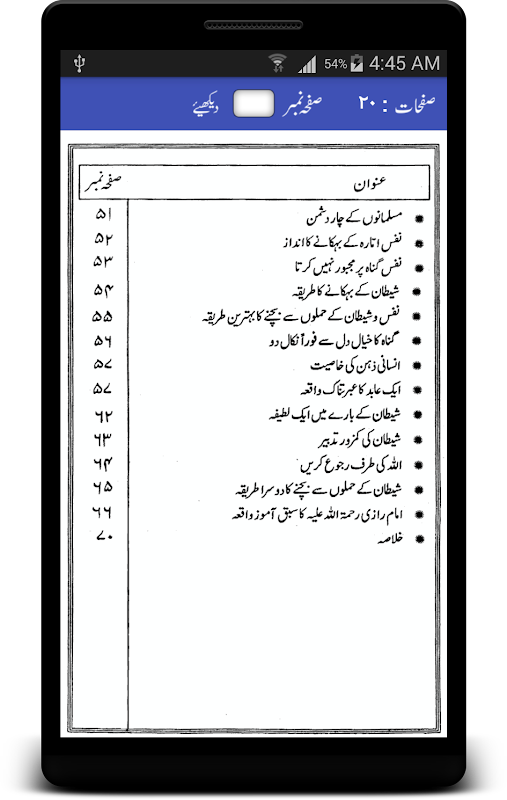 54% 4:45 AM
صفحات : ۲۰ صفحہ نمبر دیکھیئے
عنوان صفحہ نمبر
مسلمانوں کے چار دشمن ۵۱
نفس امّارہ کے بہکانے کا انداز ۵۲
نفس گناہ پر مجبور نہیں کرتا ۵۳
شیطان کے بہکانے کا طریقہ ۵۴
نفس و شیطان کے حملوں سے بچنے کا بہترین طریقہ ۵۵
گناہ کا خیال دل سے فوراً نکال دو ۵۶
انسانی ذہن کی خاصیت ۵۷
ایک عابد کا عبرتناک واقعہ ۵۷
شیطان کے بارے میں ایک لطیفہ ۶۲
شیطان کی کمزور تدبیر ۶۳
اللہ کی طرف رجوع کریں ۶۴
شیطان کے حملوں سے بچنے کا دوسرا طریقہ ۶۵
امام رازی رحمۃ اللہ علیہ کا سبق آموز واقعہ ۶۶
خلاصہ ۷۰